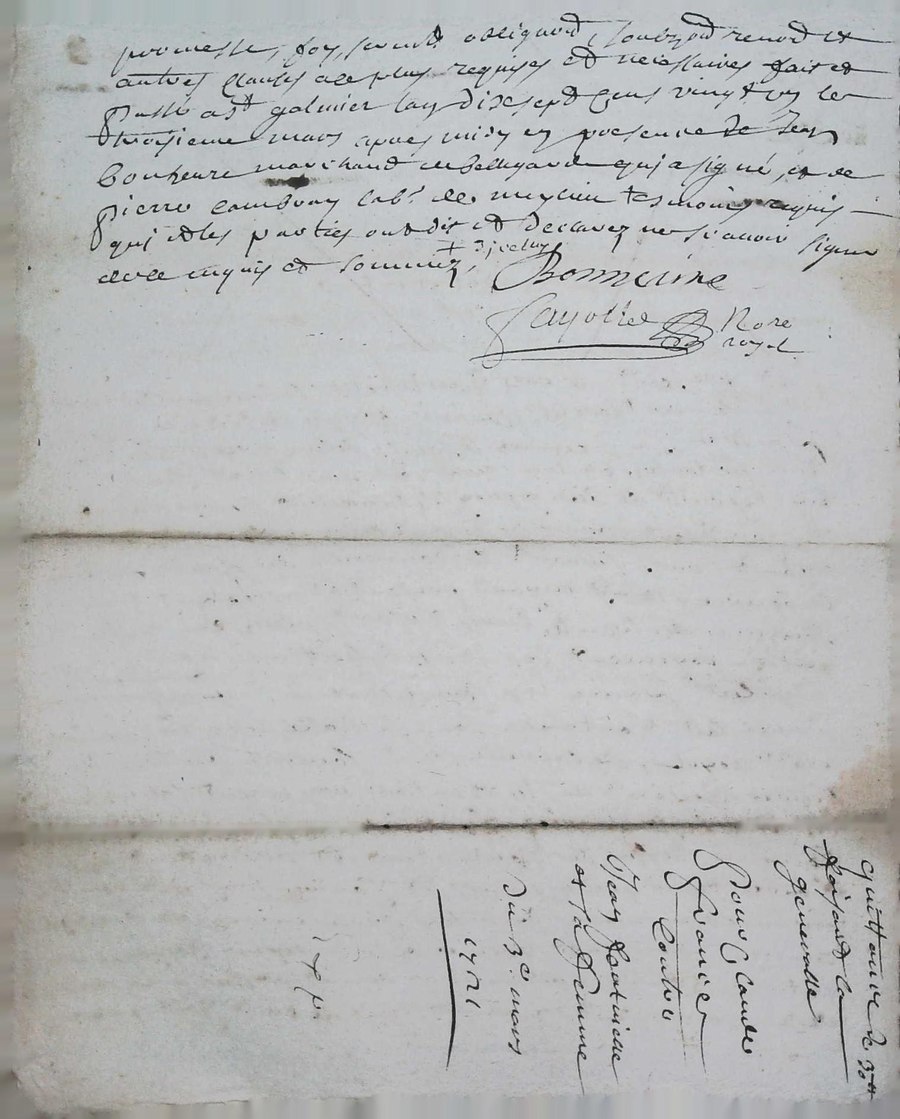 promesse, foy, sermt obligaōn, soubzōn renōn et
autres clauses a ce plus requises et necessaires fait et
passé a st galmier lan dix sept cens vingt un le
troisieme mars apres midy en presence de Jean
bonheure marchand de bellegarde qui a signé, et de
pierre lab.r de tesmoins requis
qui et les parties ont dit et declarez ne scavoir signer
de ce enquis et sommez,
+ dicelluy
Bonneure
Fayolle Nore
royal
quittance de 30 tt
faisant la
generalle
Pour Claude
france
Contre
Jean
et sa femme
Du 3e mars
1721